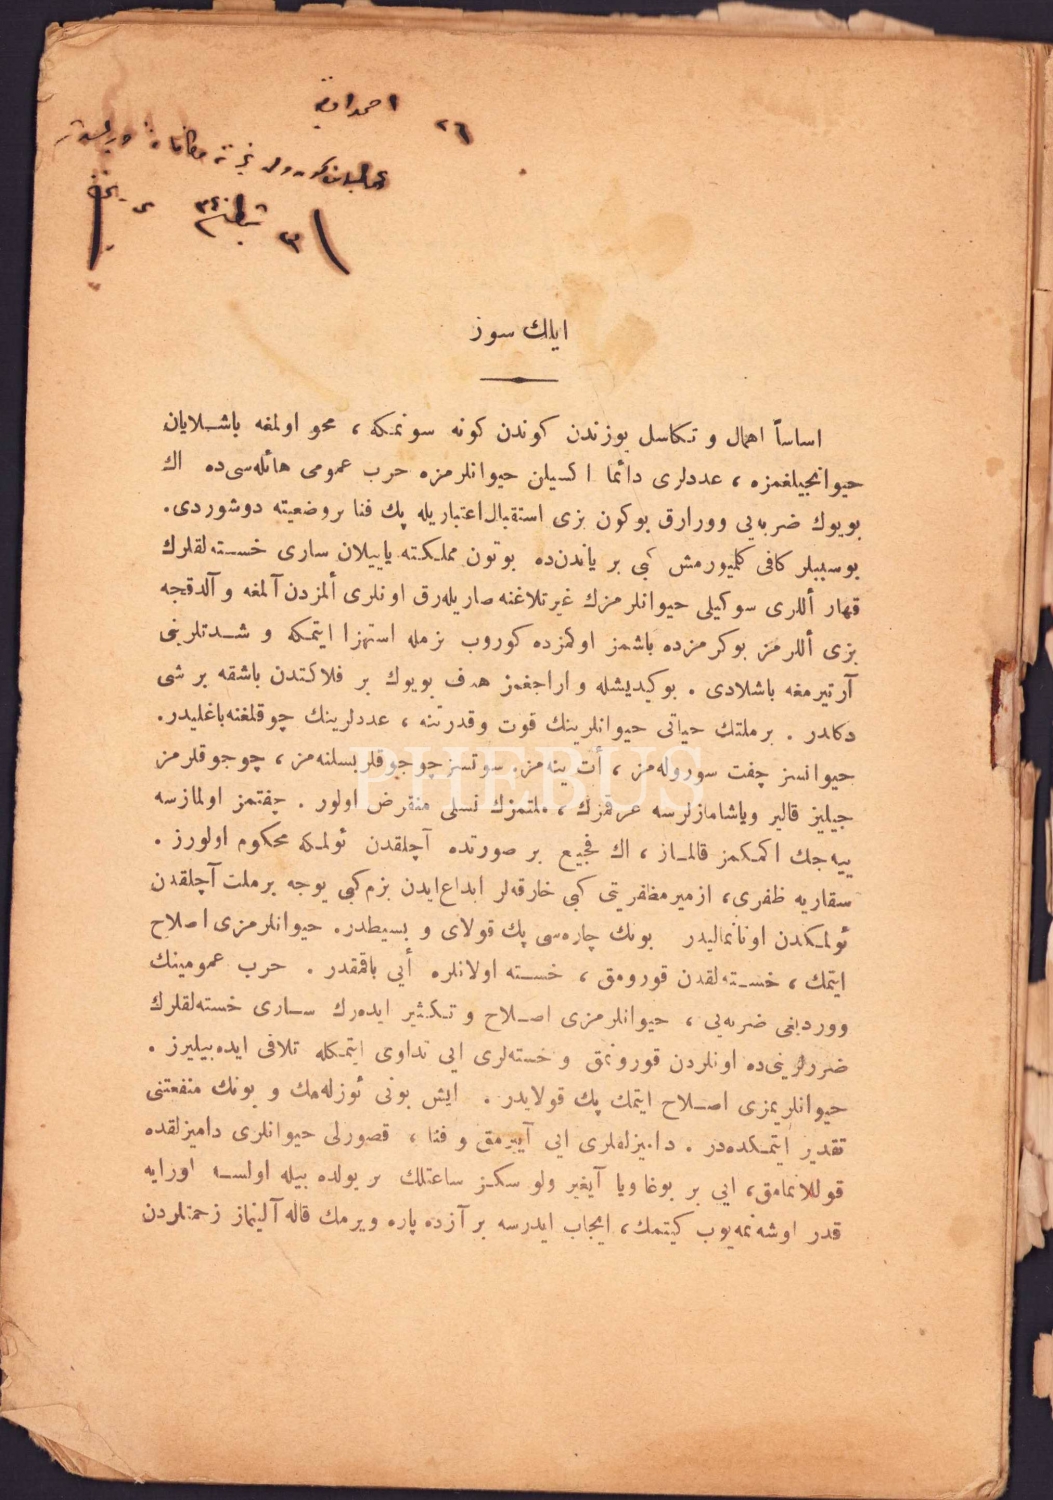 ٢٦
احمد
٣
٣٤٠
ايلك سوز
اساساً اهمال و تكاسل يوزندن كوندن كونه سونمكه ، محو اولمغه باشلايان
حيوانجيلغمزه ، عددلرى دائما اكسيلن حيوانلرمزه حرب عمومى هائله‌سى‌ده اك
بويوك ضربه‌يى وورارق بوكون بزى استقبال اعتباريله پك فنا بر وضعيته دوشوردى.
بوسببلر كافى كليورمش كبى بر ياندن‌ده بوتون مملكته ياييلان سارى خسته‌لقلرك
قهار أللرى سوكيلى حيوانلرمزك غيرتلاغنه صاريله‌رق اونلرى ألمزدن آلمغه و آلدقجه
بزى أللرمز بوكرمزده باشمز اوكمزده كوروب بزمله استهزا ايتمكه و شدتلرينى
آرتيرمغه باشلادى . بوكيديشله واراجغمز هدف بويوك بر فلاكتدن باشقه بر شى
دكلدر . برملتك حياتى حيوانلرينك قوت وقدرتنه ، عددلرينك چوقلغنه باغليدر.
حيوانسز چفت سوروله‌مز ، أت يينه‌مز. سوتسز چوجوقلر بسلنه‌مز ، چوجوقلرمز
جيليز قالير وياشامازلرسه عرقمزك ، ملتمزك نسلى منقرض اولور . چفتمز اولمازسه
ييه‌جك اكمكمز قالماز ، اك فجيع بر صورتده آچلقدن ئولمكه محكوم اولورز .
سقاريه ظفرى، ازمير مظفريتى كبى خارقه‌لر ابداع ايدن بزم كبى يوجه برملت آچلقدن
ئولمكدن اوتانماليدر بونك چاره‌سى پك قولاى و بسيطدر. حيوانلرمزى اصلاح
ايتمك ، خسته‌لقدن قورومق ، خسته اولانلره أيى باقمقدر . حرب عمومينك
ووردينى ضربه‌يى ، حيوانلرمزى اصلاح و تكثير ايده‌رك سارى خسته‌لقلرك
ضررلرينى‌ده اونلردن قورونمق و خسته‌لرى ايى تداوى ايتمكله تلافى ايده‌بيليرز .
حيوانلريمزى اصلاح ايتمك پك قولايدر . ايش بونى ئوزله‌مك و بونك منفعتنى
تقدير ايتمكده‌در . داميزلقلرى ايى آييرمق و فنا ، قصورلى حيوانلرى داميزلقده
قوللانمامق، ايى بر بوغا ويا آيغير ولو سكز ساعتلك بر يولده بيله اولسه اورايه
قدر اوشه‌نمه‌يوب كيتمك، ايجاب ايدرسه بر آزده پاره ويرمك قاله آلينماز زحمتلردن
PHEBUS